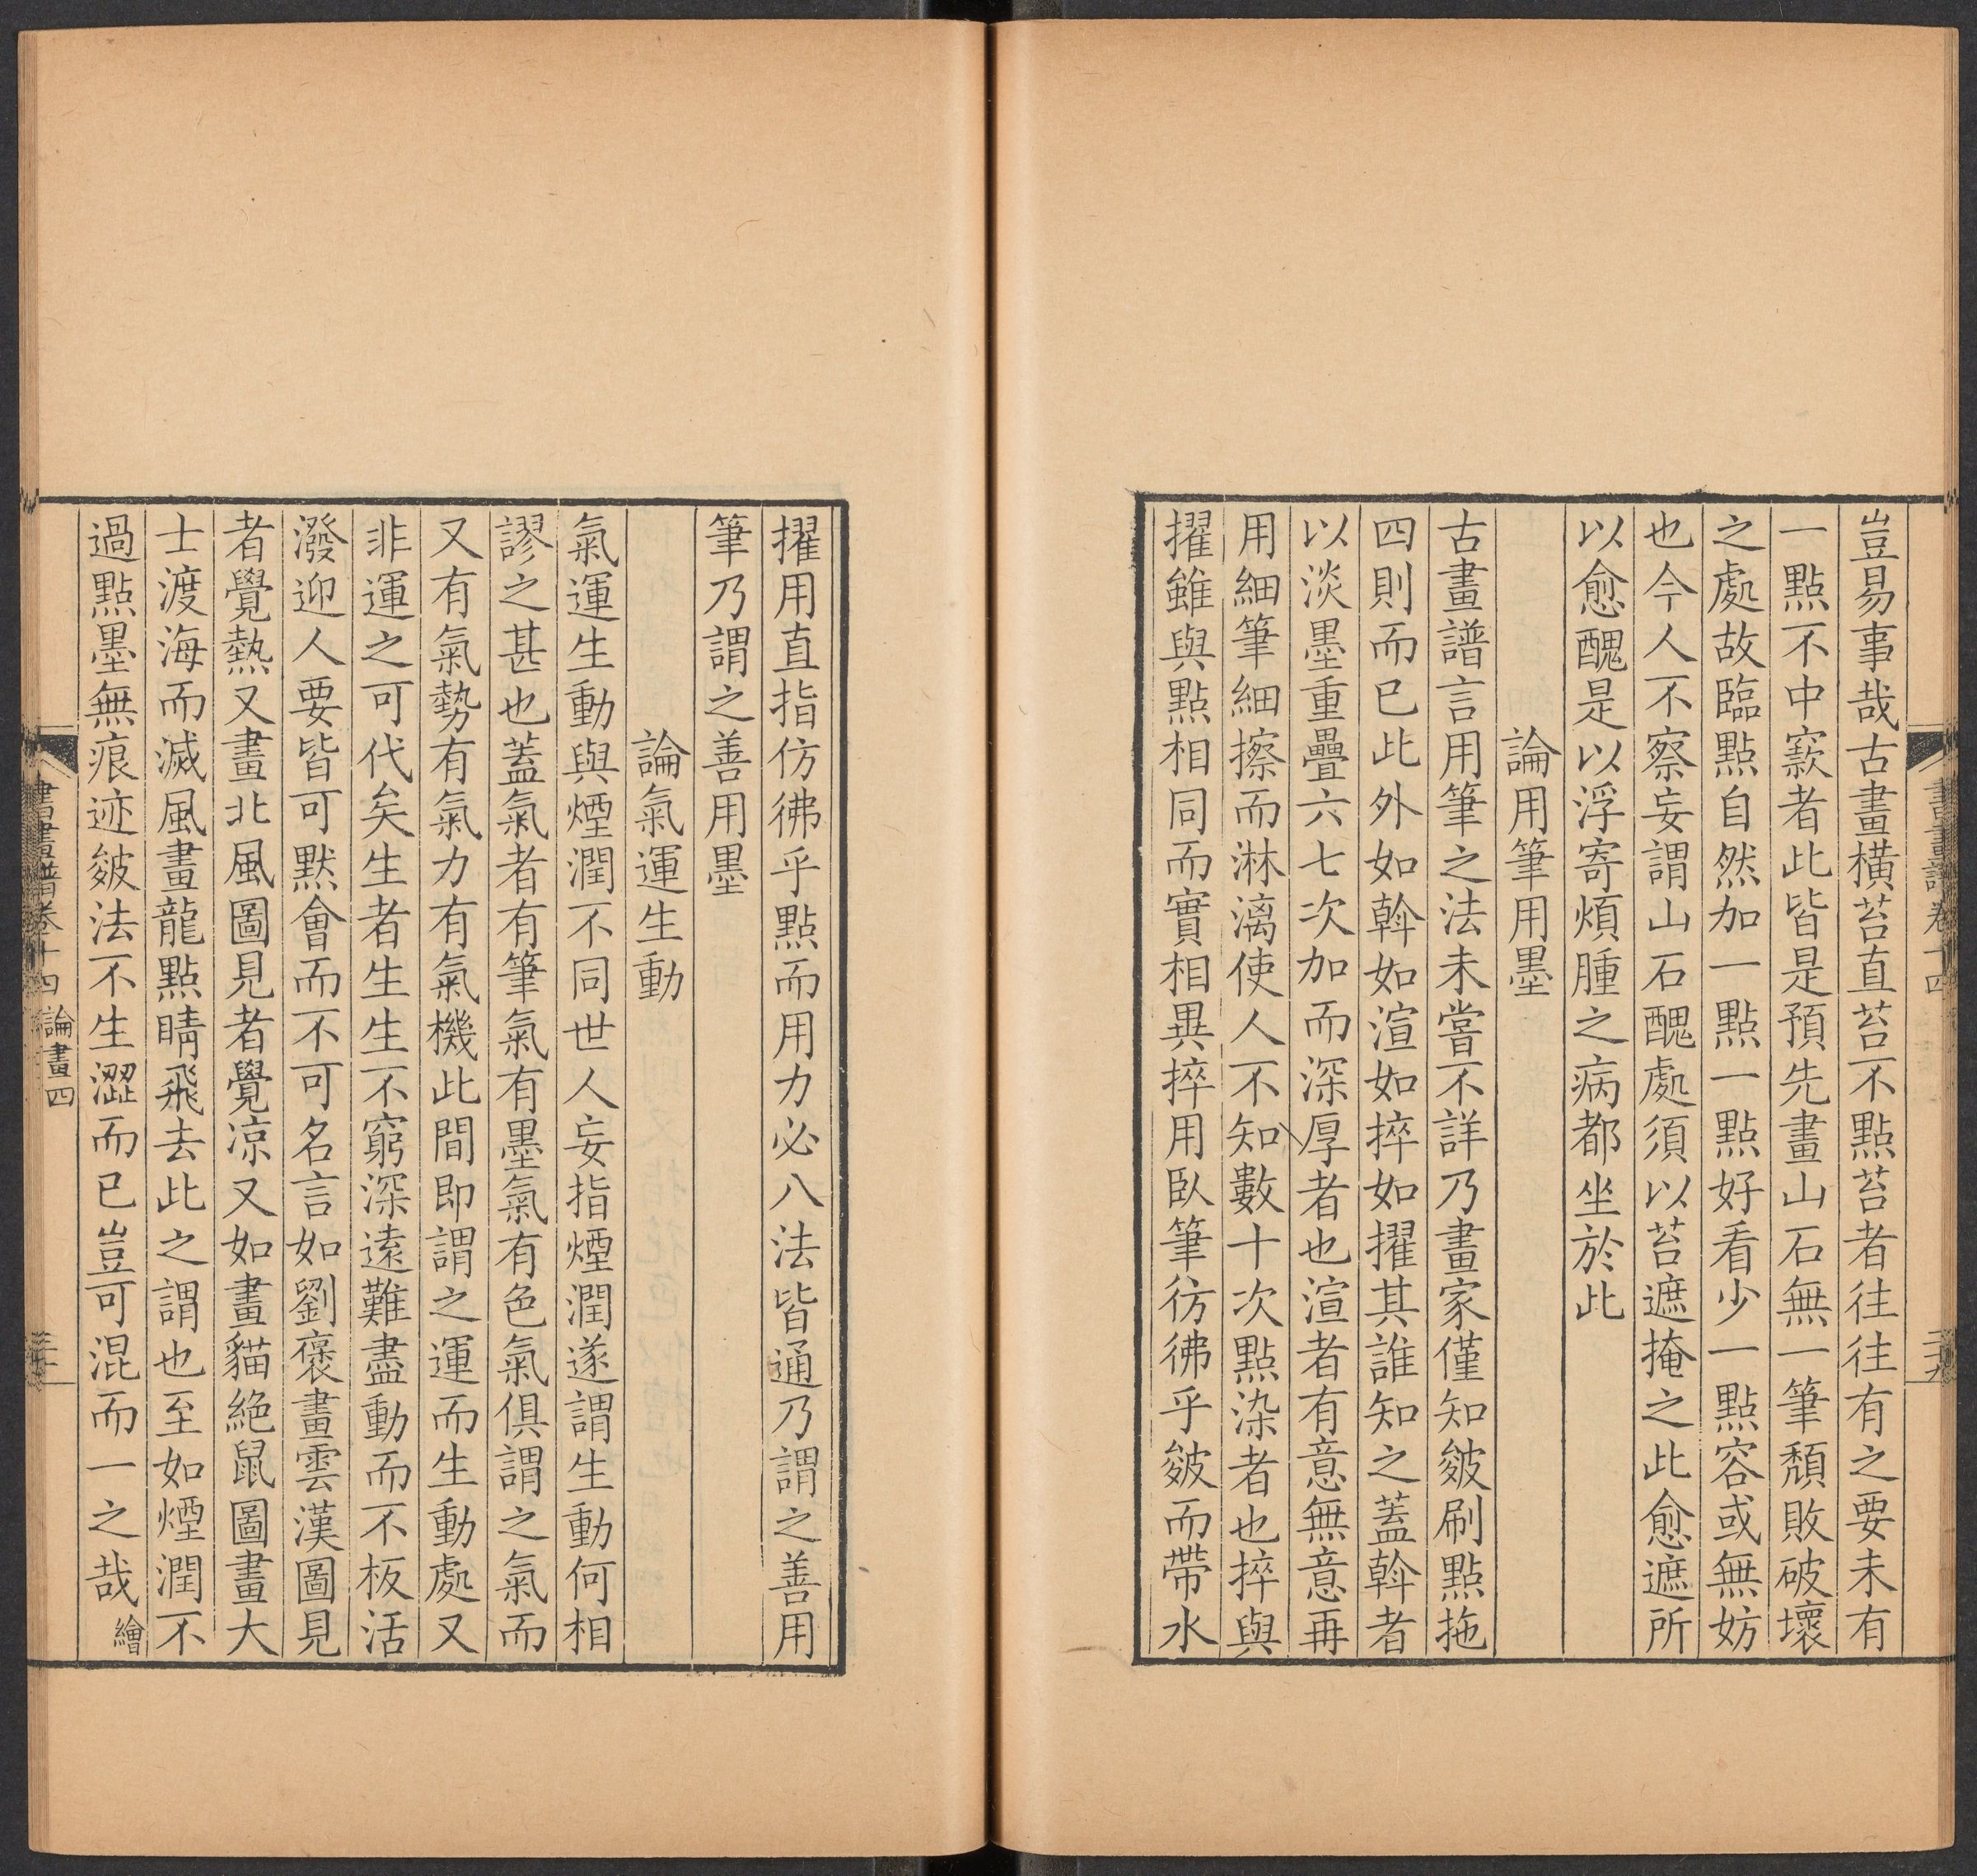 書畫譜卷十四
二十九
豈易事哉古畫橫苔直苔不點苔者往往有之要未有
一點不中窾者此皆是預先畫山石無一筆頹敗破壞
之處故臨點自然加一點一點好看少一點容或無妨
也今人不察妄謂山石醜處須以苔遮掩之此愈遮所
以愈醜是以浮寄煩腫之病都坐於此
論用筆用墨
古畫譜言用筆之法未嘗不詳乃畫家僅知皴刷點拖
四則而已此外如斡如渲如捽如擢其誰知之蓋斡者
以淡墨重疊六七次加而深厚者也渲者有意無意再
用細筆細擦而淋漓使人不知數十次點染者也捽與
擢雖與點相同而實相異捽用臥筆彷彿乎皴而帶水
擢用直指仿彿乎點而用力必八法皆通乃謂之善用
筆乃謂之善用墨
論氣運生動
氣運生動與煙潤不同世人妄指煙潤遂謂生動何相
謬之甚也蓋氣者有筆氣有墨氣有色氣俱謂之氣而
又有氣勢有氣力有氣機此間即謂之運而生動處又
非運之可代矣生者生生不窮深遠難盡動而不板活
潑迎人要皆可默會而不可名言如劉褒畫雲漢圖見
者覺熱又畫北風圖見者覺凉又如畫貓絕鼠圖畫大
士渡海而滅風畫龍點睛飛去此之謂也至如煙潤不
過點墨無痕迹皴法不生澀而已豈可混而一之哉 繪
書畫譜卷十四 論畫四
三十